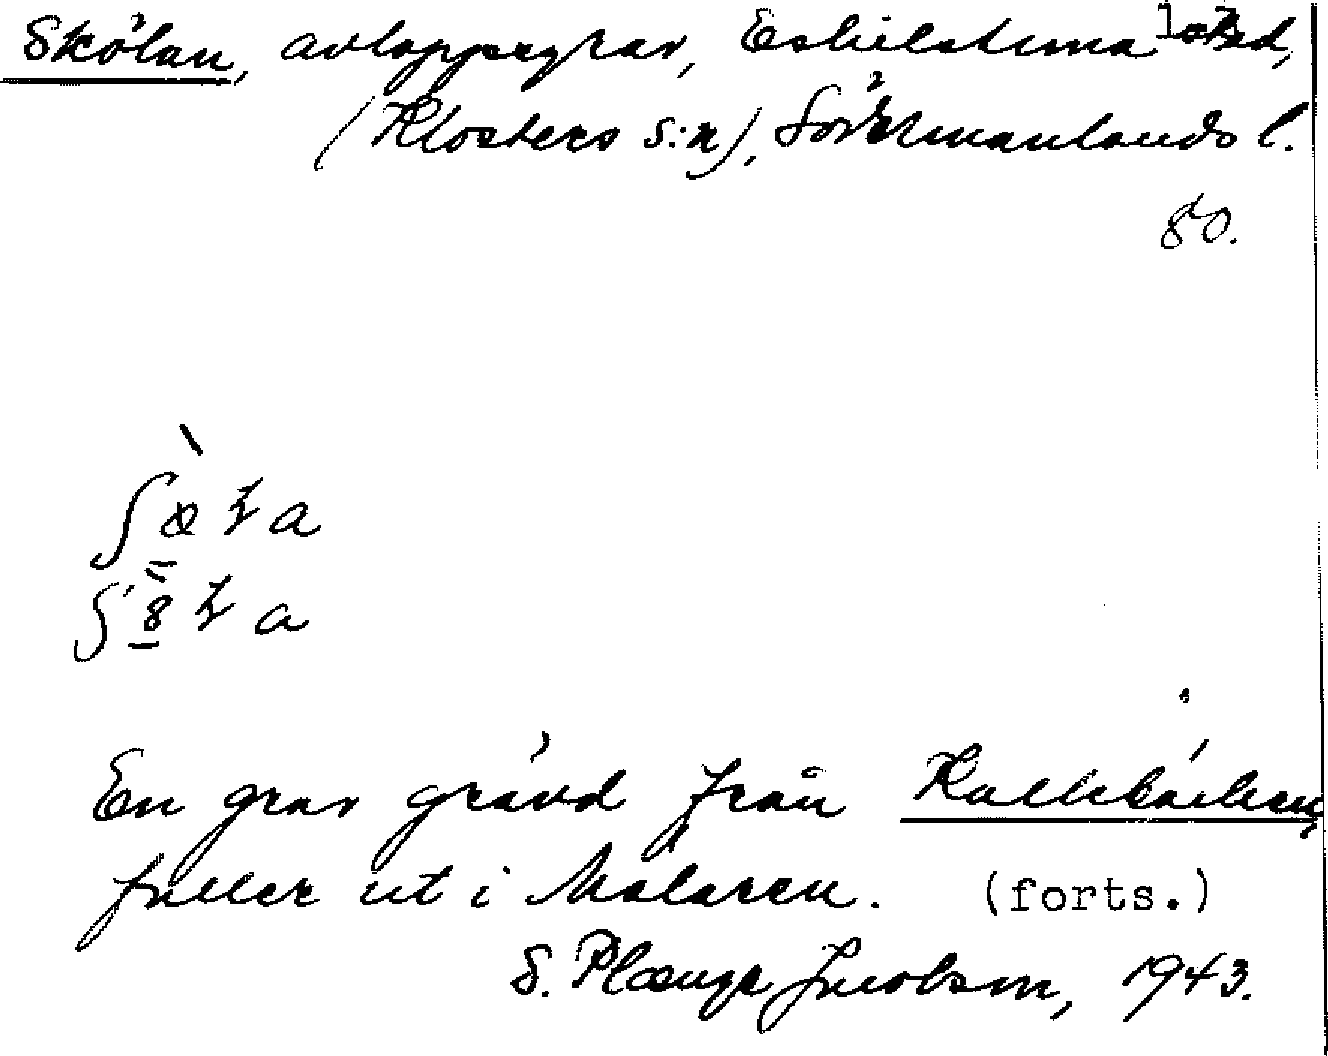 Skölan, avloppsgrav, Eskilstuna stad,
(Klosters s:n), Södermanlands l.
80.
En grav grävd från Kallbäcken,
faller ut i Mälaren. (forts.)
S. Plænge Jacobson, 1943.